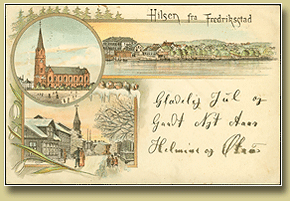 Hilsen fra Fredriksstad
Glædelig Jul og
Godt Nyt Aar
Helmine og